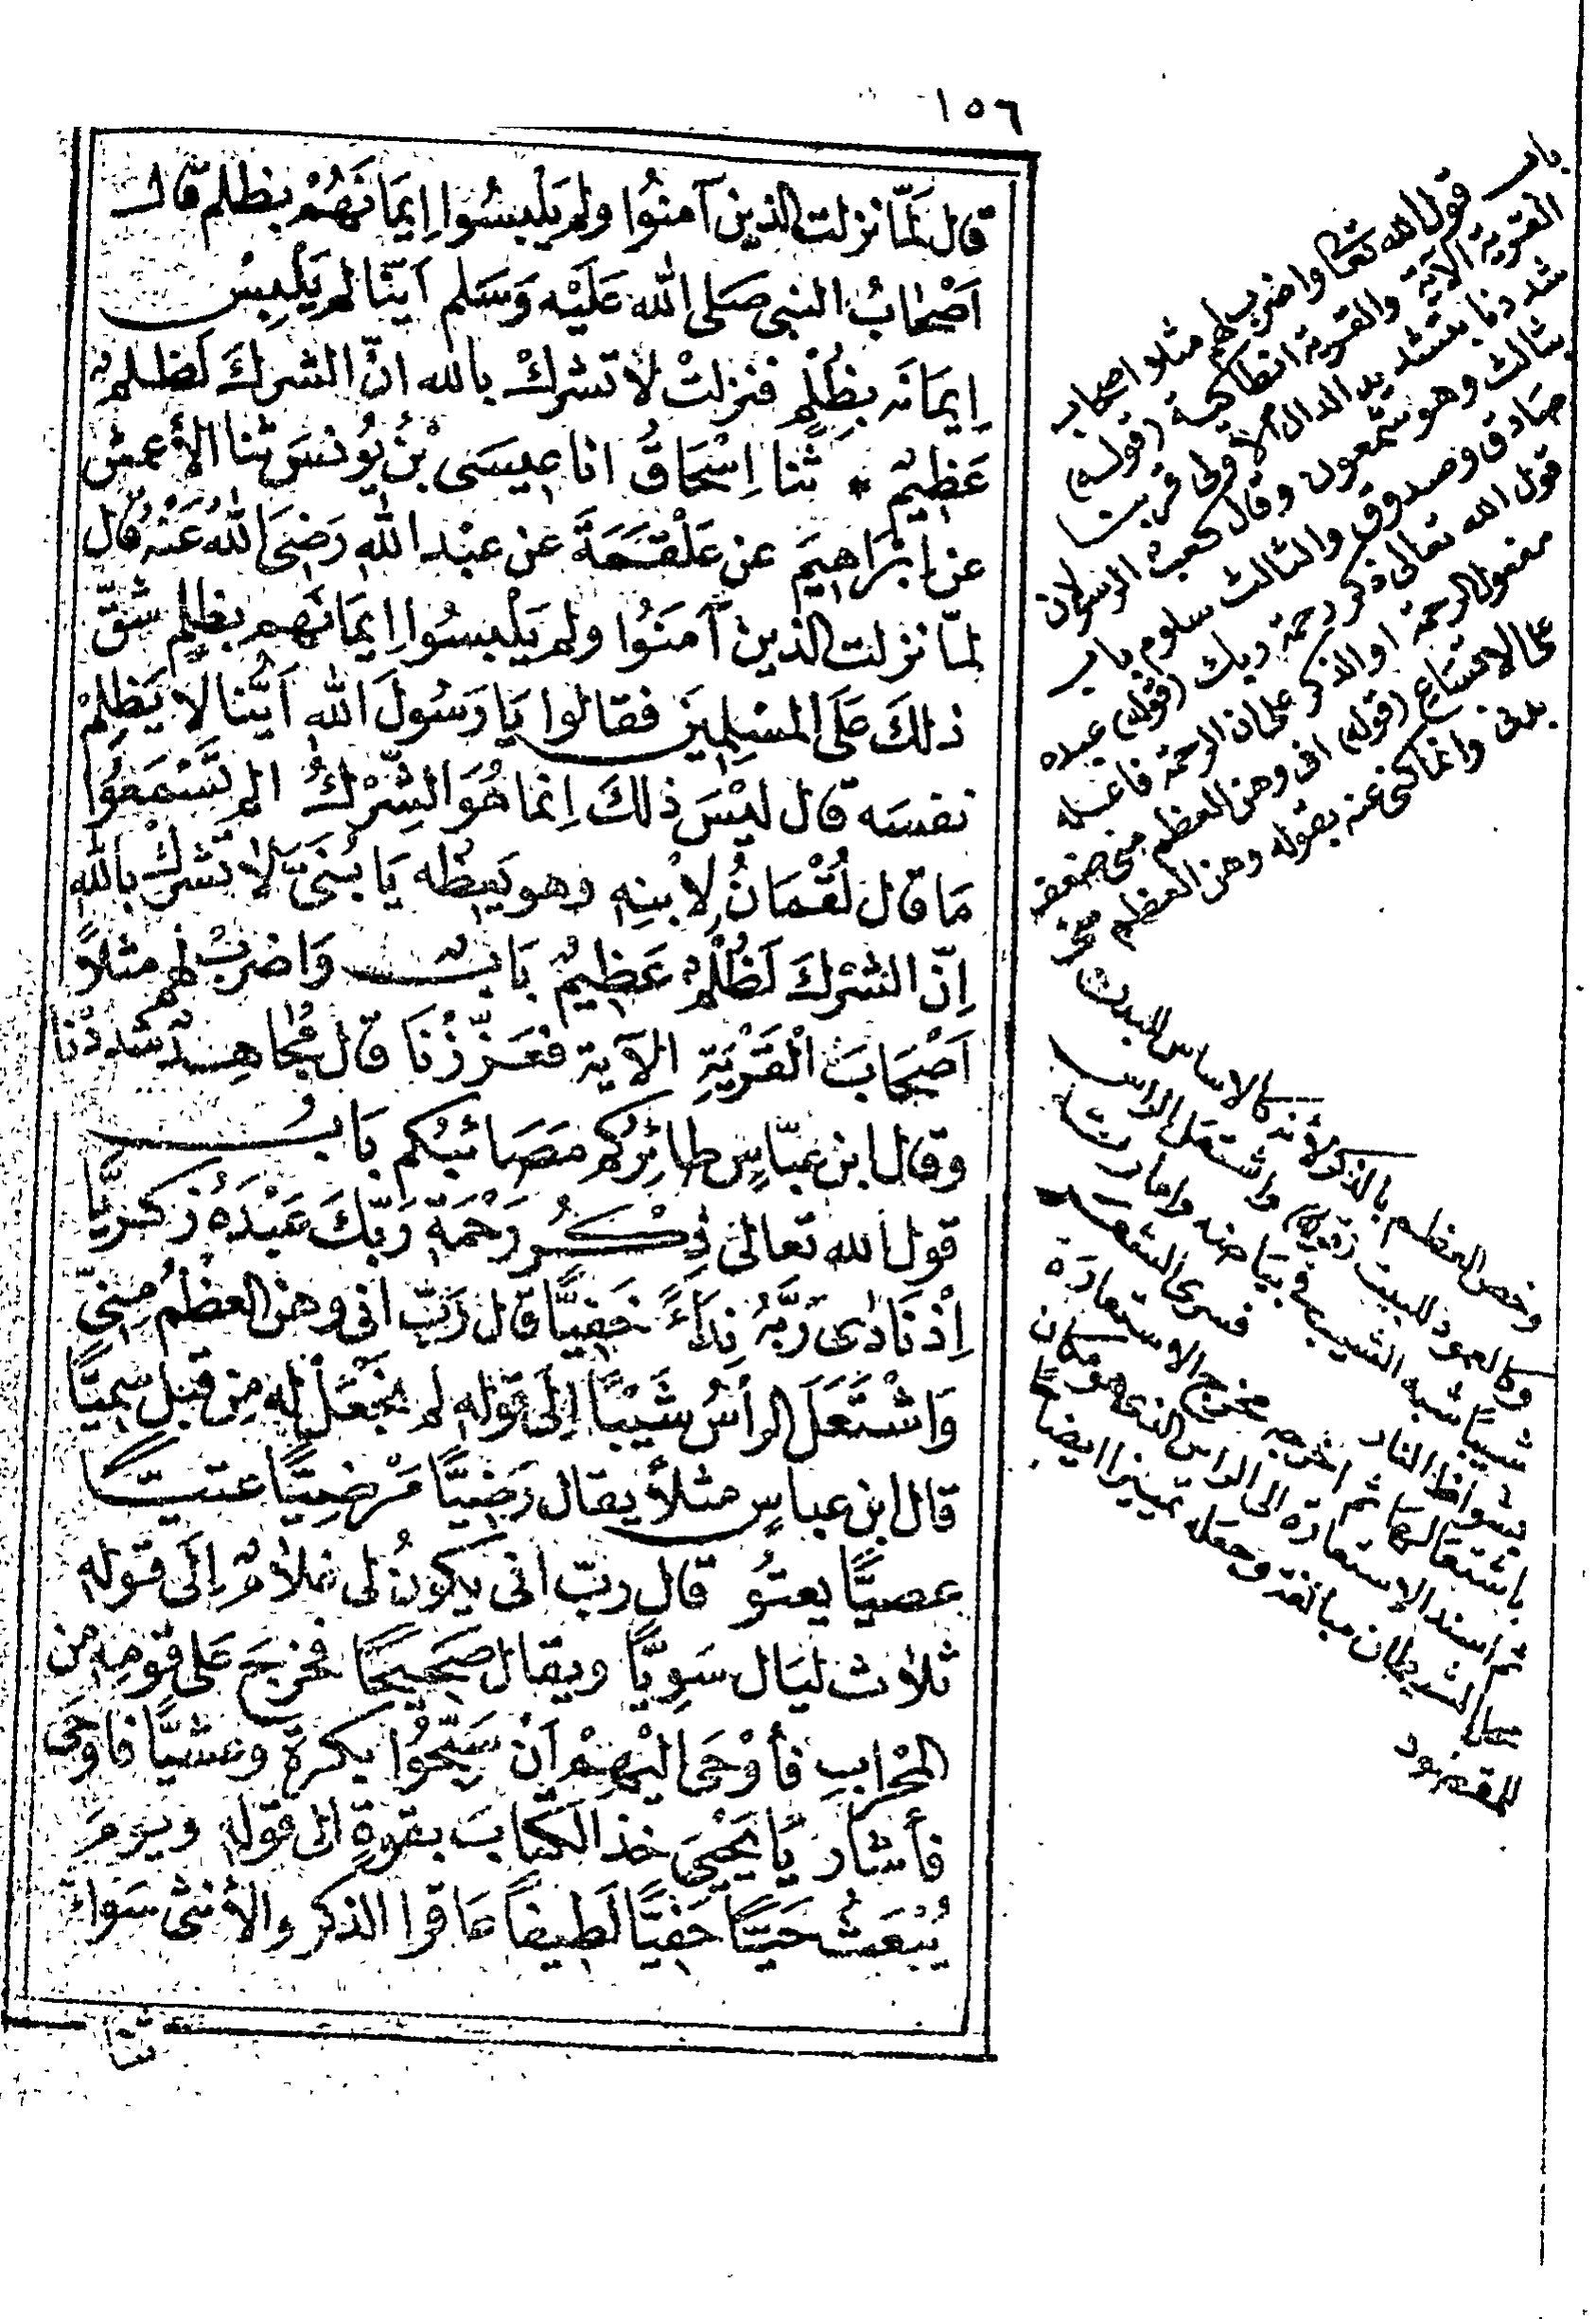 ١٥٦
قال لَمَّا نزلت الذين آمنُوا ولم يَلْبِسُوا اِيمَانَهُمْ بظلم قال
اَصْحَابُ النبى صَلى الله عَلَيْه وَسَلم اَيّنَا لم يَلْبِسْ
اِيمَانَه بِظُلْمٍ فنزلتْ لا تشركْ بالله انّ الشركَ لَظلمٌ
عَظِيمٌ * ثَنا اِسْحَاقُ انا عِيسَى بْنُ يُونسَ ثنا الأعمش
عن اِبْرَاهِيمَ عن عَلْقَمَةَ عن عبْد الله رَضِىَ اللهُ عَنْهُ قال
لمّا نزلت الذينَ آمَنُوا ولم يَلْبسُوا اِيمَانَهم بظلمٍ شقّ
ذلكَ عَلَى المسْلِمِينَ فقالوا يَا رَسُولَ الله اَيُّنَا لا يَظلِمُ
نفسَه قال ليْسَ ذلكَ اِنما هُوَ الشّرْكُ الم تَسْمَعُوا
مَا قال لُقْمَانُ لاِبْنِهِ وهو يَعِظُه يَا بُنَىَّ لا تشركْ بالله
اِنّ الشرْكَ لَظُلْمٌ عَظِيمٌ بَابٌ وَاضربْ لهم مثلاً
اَصْحَابَ الْقَرْيَةِ الآية فعَزّزْنَا قال مُجاهِدٌ شدّدْنا
وقال ابن عبّاسٍ طائِركم مَصَائبُكم بَابُ
قول الله تعالى ذِكْرُ رَحْمَةِ رَبّكَ عَبْدَهُ زكريَّا
اِذْ نَادٰى رَبَّهُ نِدَاءً خَفِيًّا قال رَبّ انى وهن العظْمُ مِنِّى
وَاشْتَعَلَ الرأسُ شَيْبًا اِلَى قوله لم نجْعَل له من قبل سَمِيّا
قال ابن عباسٍ مثلاً يقال رَضِيًّا مَرْضِيًّا عتيًّا
عصيًّا يعتُو قال ربّ انى يكونُ لى غلامٌ اِلَى قوله
ثلاث ليَال سَوِيًّا ويقال صَحِيحًا فخرجَ على قومِه من
المحْرابِ فأوْحَى اليْهِمْ اَنْ سَبّحُوا بكرةً وعشيًّا فاَوحَى
فأشار يَا يَحْيَى خذ الكتابَ بقوةٍ الى قوله ويومَ
يُبْعَثُ حَيًّا حَفِيًّا لَطيفاً عاقرا الذكر والأنثى سَواء
ثنا
باب قول الله تعالى واضرب لهم مثلا اصحاب
القرية الآية والقرية انطاكية (قوله)
شددنا بتشديد الدال الاولى
بثالث وهو شمعون وقال كعب الرسولان
صادق وصدوق والثالث سلوم باب
قول الله تعالى ذكر رحمة ربك (قوله) عبده
مفعول الرحمة او الذكر على ان الرحمة فاعله
على الاتساع (قوله) انى وهن العظم منى ضعف
بدنى وانما كنى عنه بقوله وهن العظم منى
وخص العظم بالذكر لأنه كالاساس للبدن
وكالعمود للبيت (قوله) واشتعل الراس
شيبا شبه الشيب فى بياضه وانارته
بشواظ النار فسرى الشعر
باشتعالها ثم اخرجه مخرج الاستعارة
ثم اسند الاستعارة الى الراس الذى هو مكان
مبالغة وجعله تمييزا ايضاحا
للمقصود